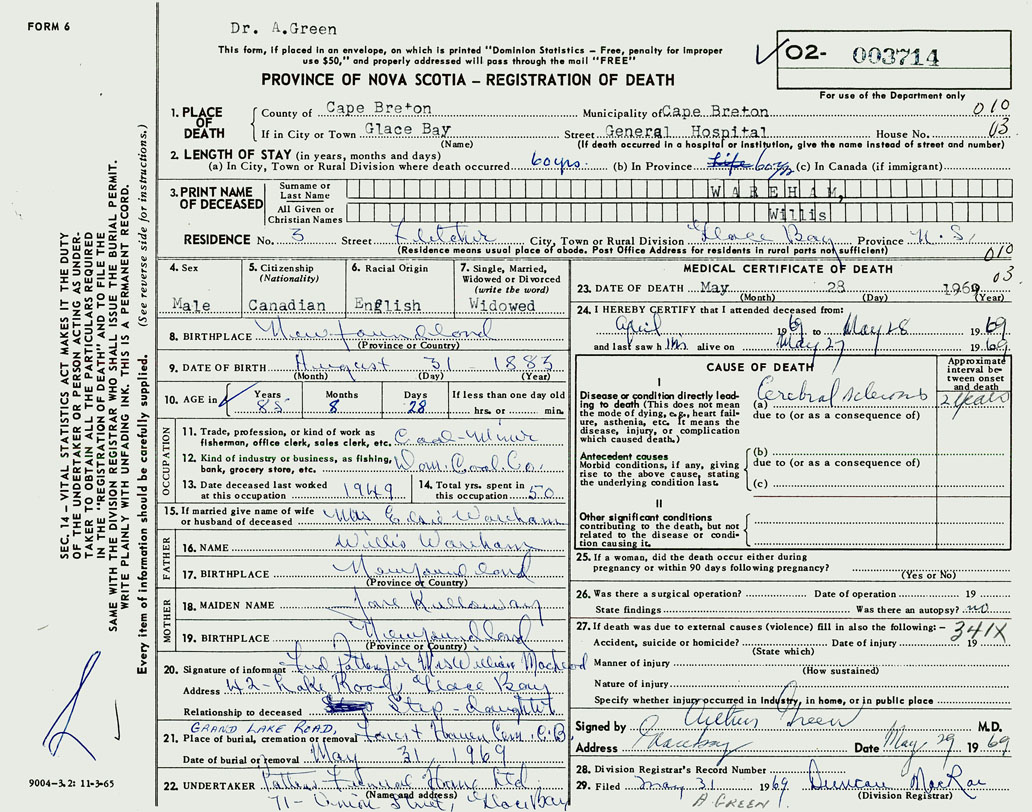 FORM 6
Dr. A.Green
This form, if placed in an envelope, on which is printed "Dominion Statistics – Free, penalty for improper
use $50," and properly addressed will pass through the mail "FREE"
PROVINCE OF NOVA SCOTIA – REGISTRATION OF DEATH
02- 003714
For use of the Department only
010
03
1. PLACE OF DEATH
County of Cape Breton Municipality of Cape Breton
If in City or Town Glace Bay Street General Hospital House No.
(Name) (If death occurred in a hospital or institution, give the name instead of street and number)
2. LENGTH OF STAY (in years, months and days)
(a) In City, Town or Rural Division where death occurred 60yrs. (b) In Province Life 60yrs (c) In Canada (if immigrant)
3. PRINT NAME OF DECEASED
Surname or Last Name WAREHAM,
All Given or Christian Names Willis
RESIDENCE No. 3 Street Fletcher City, Town or Rural Division Glace Bay Province N.S.
(Residence means usual place of abode. Post Office Address for residents in rural parts not sufficient)
010
03
4. Sex
Male
5. Citizenship (Nationality)
Canadian
6. Racial Origin
English
7. Single, Married, Widowed or Divorced (write the word)
Widowed
8. BIRTHPLACE Newfoundland
(Province or Country)
9. DATE OF BIRTH August 31 1883
(Month) (Day) (Year)
10. AGE in Years Months Days If less than one day old
85 8 28 hrs. or min.
OCCUPATION
11. Trade, profession, or kind of work as
fisherman, office clerk, sales clerk, etc. Coal-Miner
12. Kind of industry or business, as fishing,
bank, grocery store, etc. Dom. Coal Co.
13. Date deceased last worked
at this occupation 1949
14. Total yrs. spent in
this occupation 50
15. If married give name of wife
or husband of deceased Mrs Elsie Wareham
FATHER
16. NAME Willis Wareham
17. BIRTHPLACE Newfoundland
(Province or Country)
MOTHER
18. MAIDEN NAME Jane Kulloway
19. BIRTHPLACE Newfoundland
(Province or Country)
20. Signature of informant for Mrs William MacLeod
Address 42-Lake Road, Glace Bay
Relationship to deceased Step-daughter
GRAND LAKE ROAD,
21. Place of burial, cremation or removal Forest Haven Cem. C.B.
Date of burial or removal May 31, 1969
22. UNDERTAKER Pattens Funeral Home Ltd.
(Name and address)
71- Union Street, Glace Bay
MEDICAL CERTIFICATE OF DEATH
23. DATE OF DEATH May 28 1969
(Month) (Day) (Year)
24. I HEREBY CERTIFY that I attended deceased from:
April 1969 to May 28 1969
and last saw him alive on May 27 1969
CAUSE OF DEATH
Approximate interval between onset and death
I
Disease or condition directly leading to death (This does not mean the mode of dying, e.g., heart failure, asthenia, etc. It means the disease, injury, or complication which caused death.)
(a) Cerebral sclerosis 2 years
due to (or as a consequence of)
Antecedent causes
Morbid conditions, if any, giving rise to the above cause, stating the underlying condition last.
(b)
due to (or as a consequence of)
(c)
II
Other significant conditions
contributing to the death, but not related to the disease or condition causing it.
25. If a woman, did the death occur either during
pregnancy or within 90 days following pregnancy?
(Yes or No)
26. Was there a surgical operation? Date of operation 19
State findings Was there an autopsy? no
27. If death was due to external causes (violence) fill in also the following: – 341X
Accident, suicide or homicide? Date of injury 19
(State which)
Manner of injury
(How sustained)
Nature of injury
Specify whether injury occurred in Industry, in home, or in public place
Signed by Arthur Green M.D.
Address Glace Bay Date May 29 1969
28. Division Registrar's Record Number
29. Filed May 31 1969 Duncan MacRae
(Division Registrar)
A GREEN
SEC. 14 – VITAL STATISTICS ACT MAKES IT THE DUTY
OF THE UNDERTAKER OR PERSON ACTING AS UNDER-
TAKER TO OBTAIN ALL THE PARTICULARS REQUIRED
IN THE "REGISTRATION OF DEATH" AND TO FILE THE
SAME WITH THE DIVISION REGISTRAR WHO SHALL ISSUE THE BURIAL PERMIT.
WRITE PLAINLY WITH UNFADING INK. THIS IS A PERMANENT RECORD.
Every item of information should be carefully supplied. (See reverse side for instructions.)
9004-3.2: 11-3-65